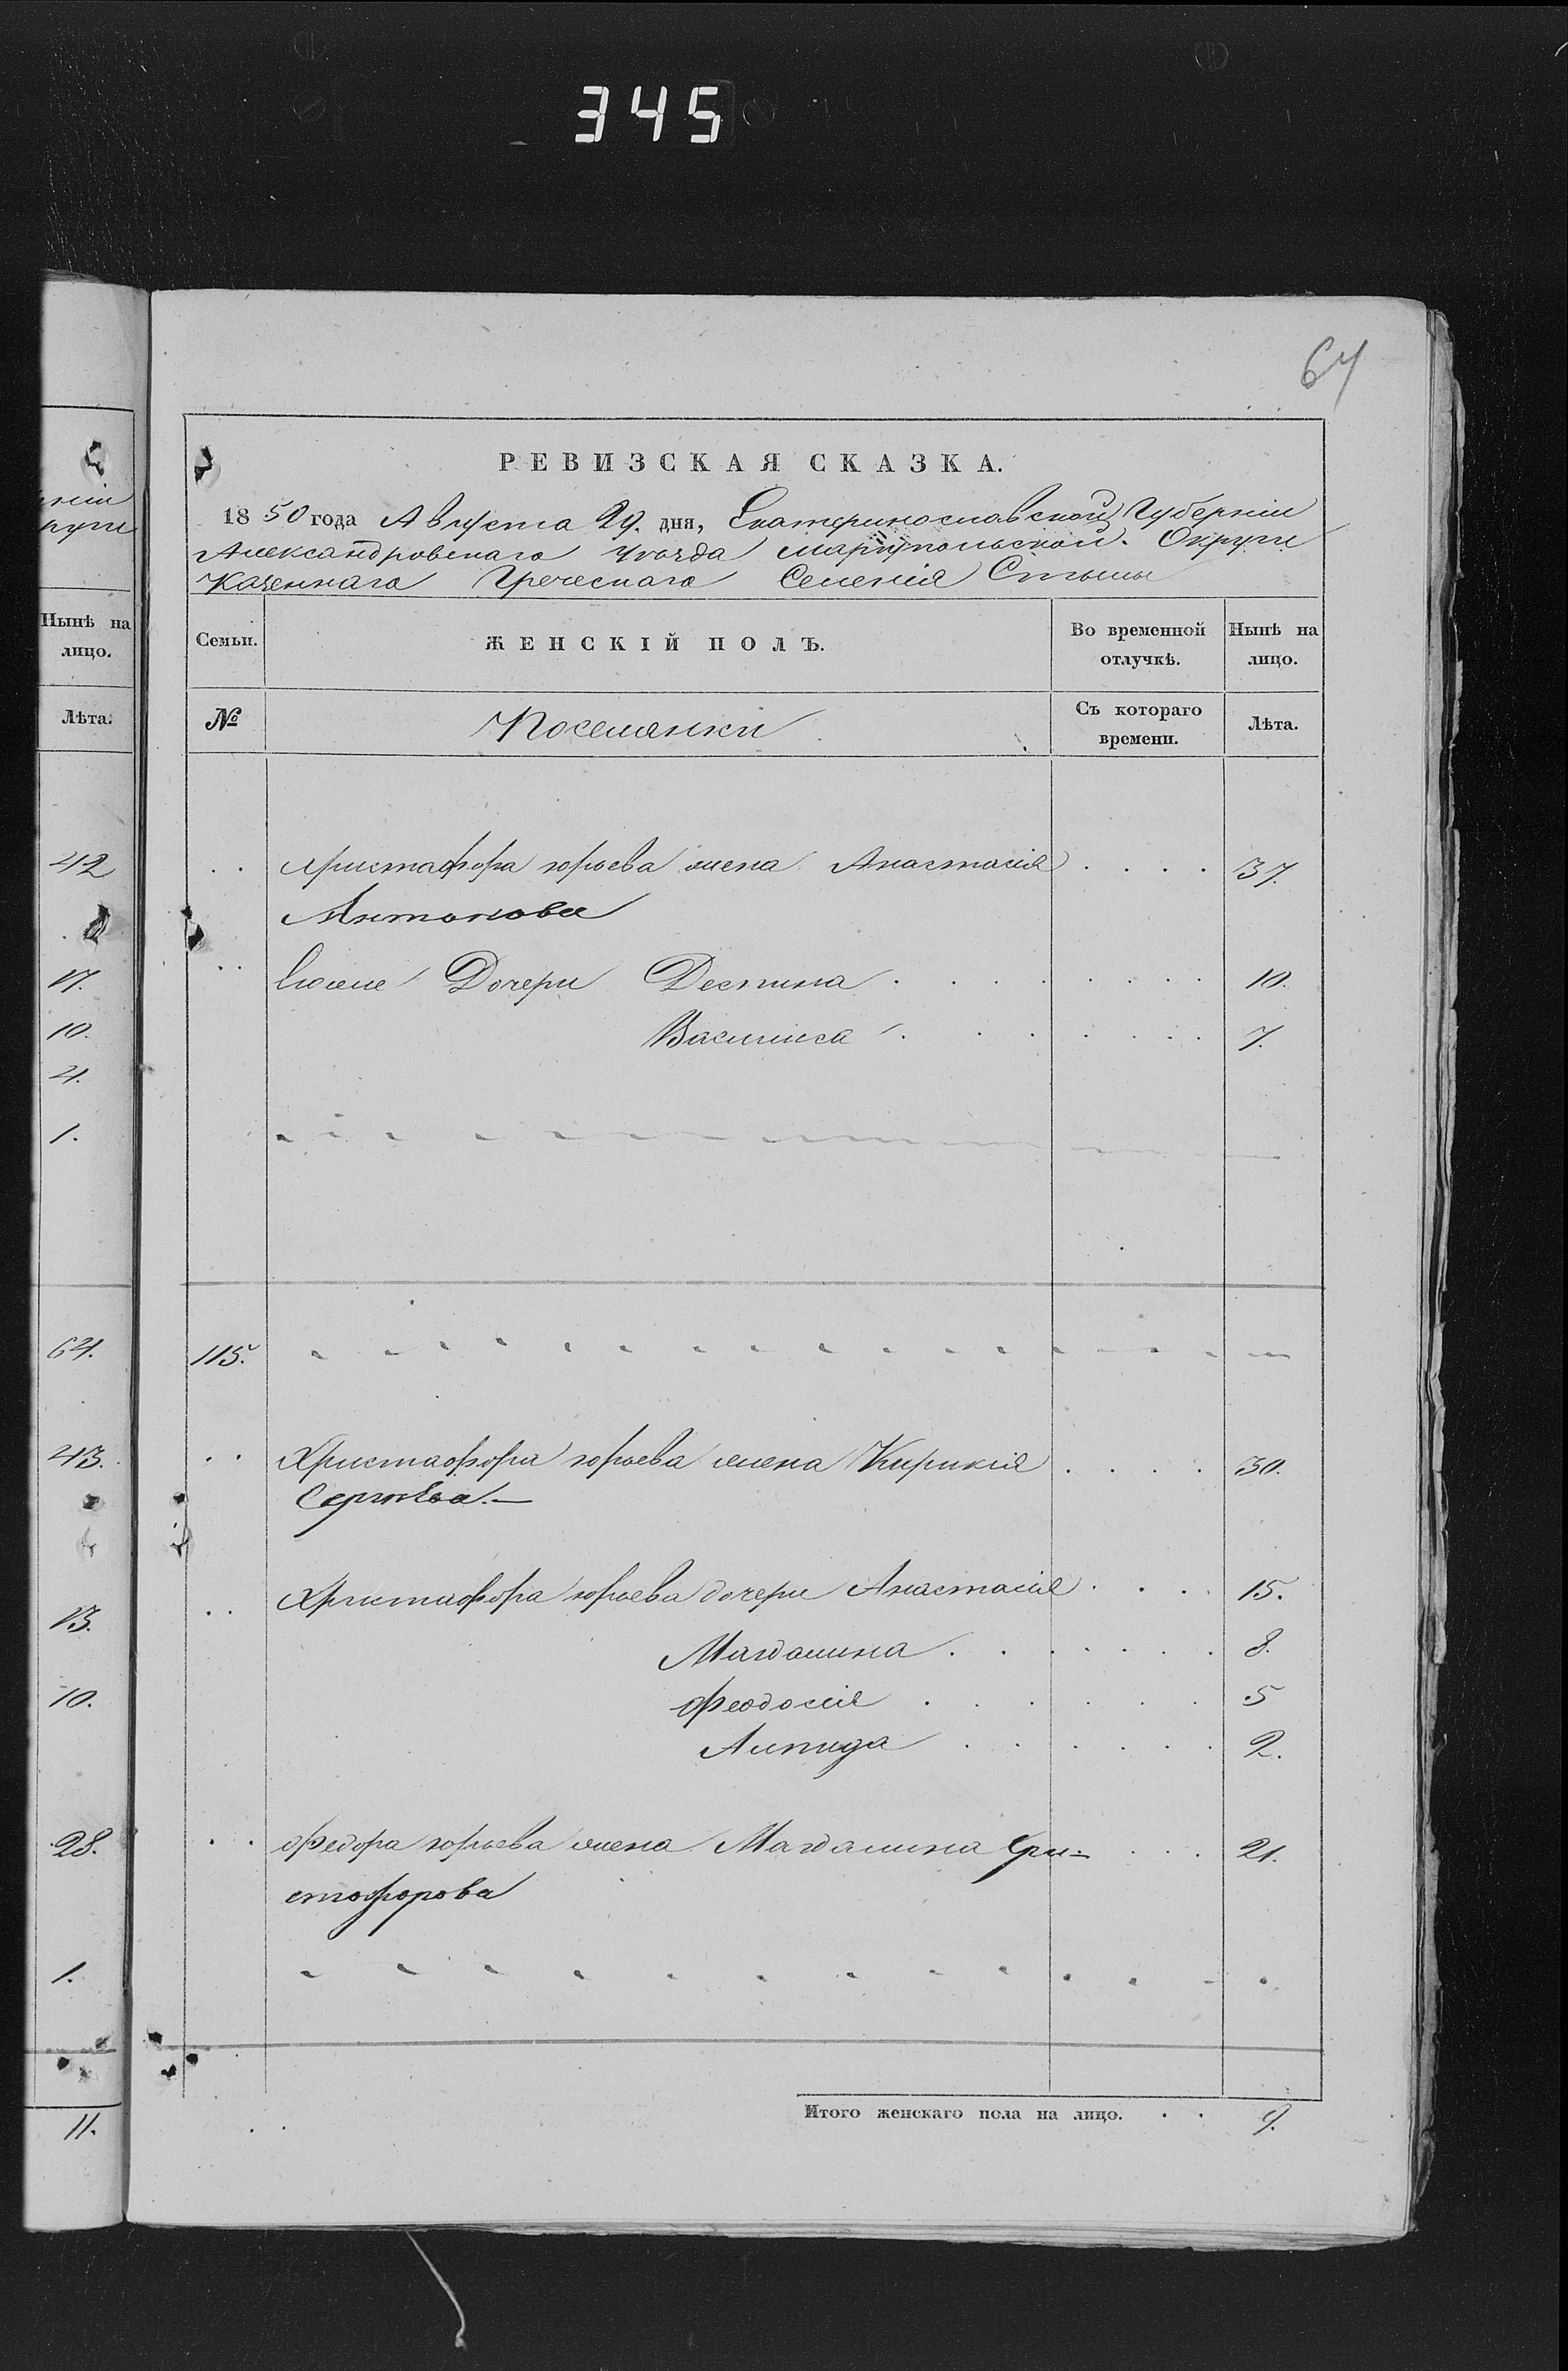 345
64
РЕВИЗСКАЯ СКАЗКА.
1850 года Августа 29. дня, Екатеринославской Губерніи
Александровскаго Уѣзда Маріупольской Округи
Казеннаго Греческаго Селенія Стылы
нiи
руги
Нынѣ на
лицо.
Лѣта.
Семьи.
ЖЕНСКІЙ ПОЛЪ.
Во временной
отлучкѣ.
Нынѣ на
лицо.
№
Поселянки
Съ котораго
времени.
Лѣта.
42
17.
10.
4.
1.
64.
43.
13.
10.
28.
1.
11.
Христафора Юрьева жена Анастасія 37.
Антонова
Дочери Деспина 10.
Василиса 7.
115.
Христафора Юрьева жена Кирикія 30.
Сергѣева.
Христафора Юрьева дочери Анастасія 15.
Магдалина 8.
Феодосія 5
Алпида 2.
Федора Юрьева жена Магдалина Хри- 21.
стофорова
Итого женскаго пола на лицо. 9.